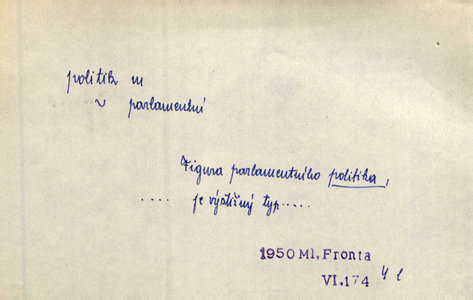 politik m
~ parlamentní
Figura parlamentního politika,
.... je výstižný typ.....
1950 Ml. Fronta
VI.174